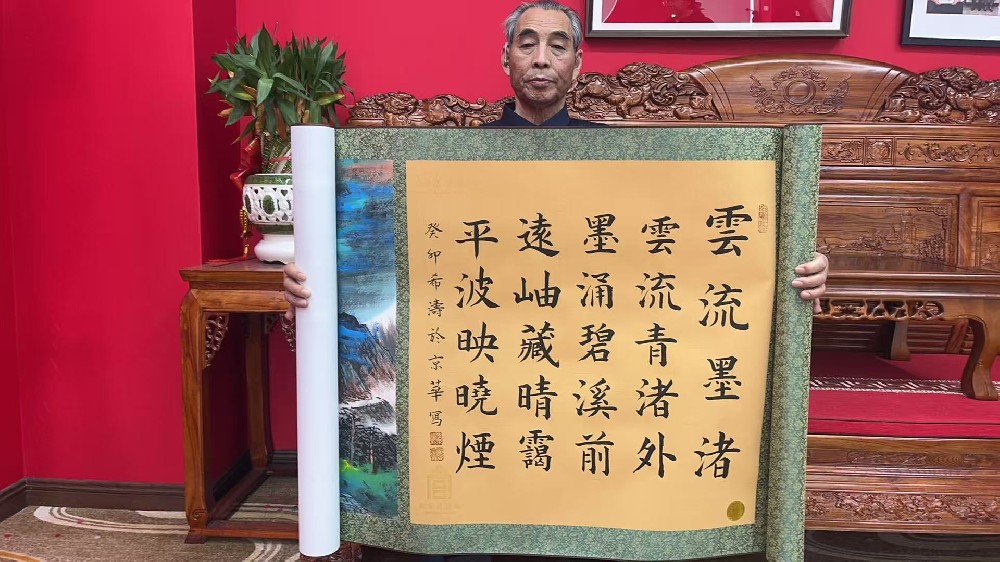 雲流墨渚
雲流青渚外
墨涌碧溪前
遠岫藏晴靄
平波映曉煙
癸卯希濤於京華寫